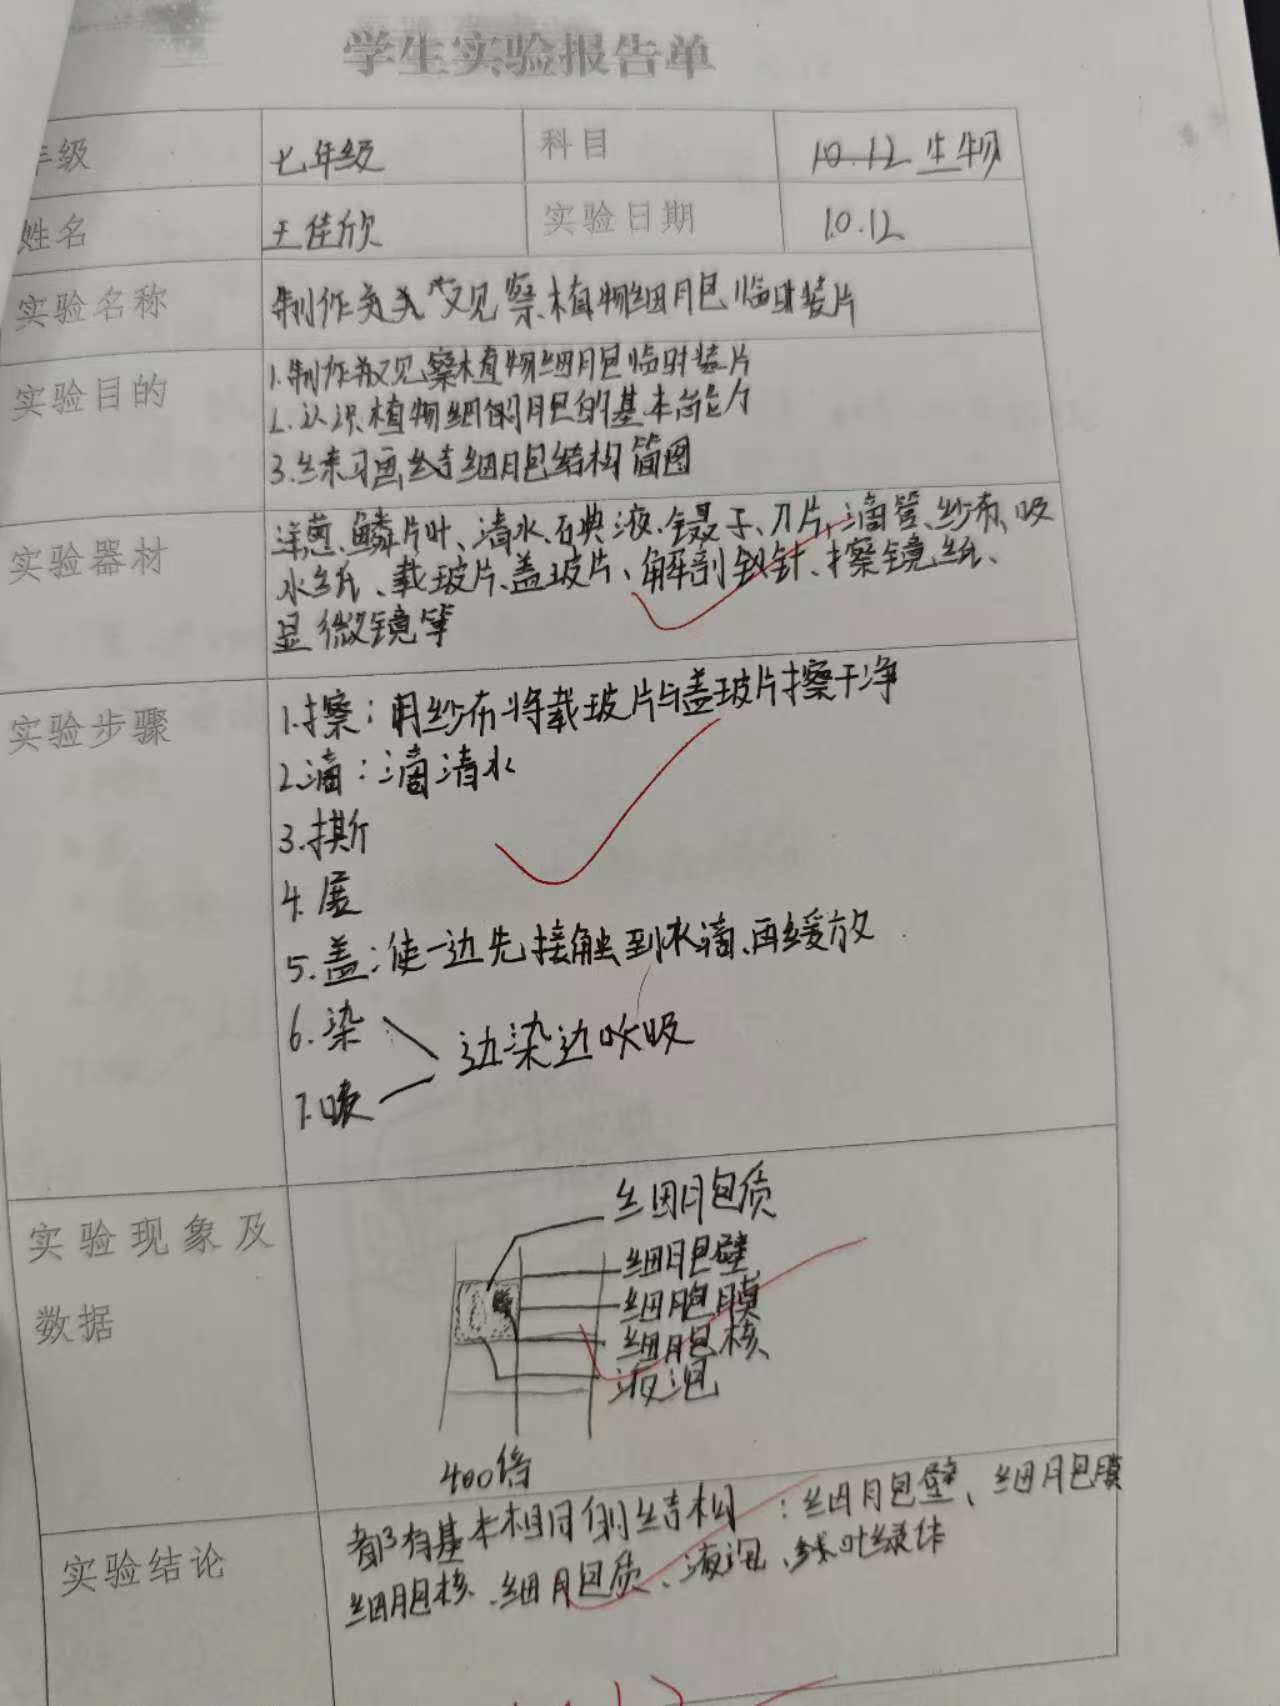 学生实验报告单
年级 七年级 科目 10.12 生物
姓名 王佳欣 实验日期 10.12
实验名称 制作 观察植物细胞临时装片
实验目的 1.制作观察植物细胞临时装片
2.认识植物细胞的基本
3.练习画细胞结构简图
实验器材 洋葱、鳞片叶、清水、碘液、镊子、刀片、滴管、纱布、吸
水纸、载玻片、盖玻片、解剖针、擦镜纸、
显微镜等
实验步骤 1.擦:用纱布将载玻片与盖玻片擦干净
2.滴:滴清水
3.撕
4.展
5.盖:使一边先接触到水滴、再缓放
6.染
边染边吸
7.吸
实验现象及
数据
细胞质
细胞壁
细胞膜
细胞核
液泡
400倍
实验结论 都有基本相同的结构:细胞壁、细胞膜
细胞核、细胞质、液泡、叶绿体